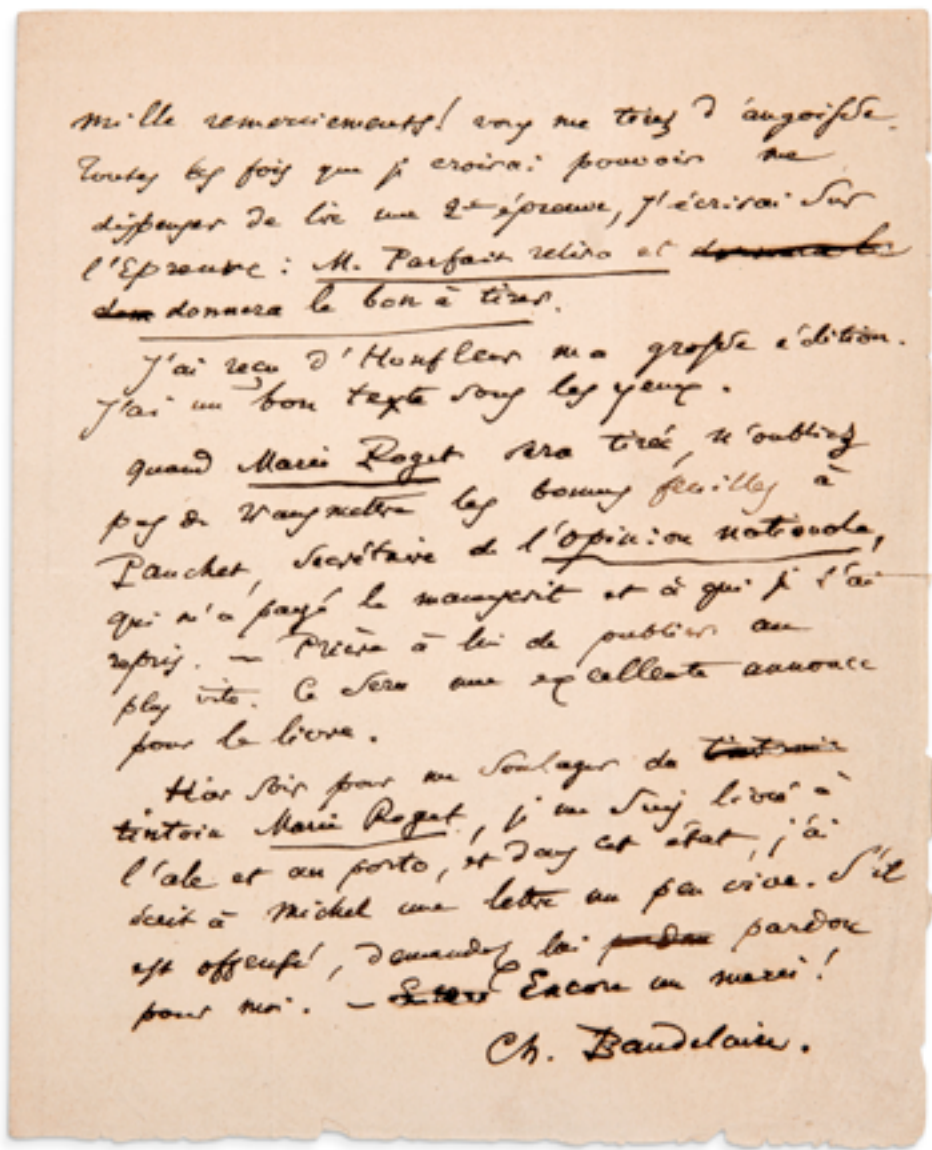 mille remerciements! vous me tirez d'angoisse.
Toutes les fois que je croirai pouvoir me
dispenser de lire une 2e épreuve, j'écrirai sur
l'Epreuve : M. Parfait relira et donnera le
donnera le bon à tirer.
J'ai reçu d'Honfleur ma grosse édition.
J'ai un bon texte sous les yeux.
quand Marie Roget sera tirée, n'oubliez
pas de transmettre les bonnes feuilles à
Pauchet, secrétaire de l'Opinion nationale,
qui m'a payé le manuscrit et à qui je l'ai
repris. — Prière à lui de publier au
plus vite. Ce sera une excellente annonce
pour le livre.
Hier soir pour me soulager du
tintoin Marie Roget, je me suis livré à
l'ale et au porto, et dans cet état, j'ai
écrit à Michel une lettre un peu vive. S'il
est offensé, demandez lui pardon
pour moi. — Encore un merci!
Ch. Baudelaire.